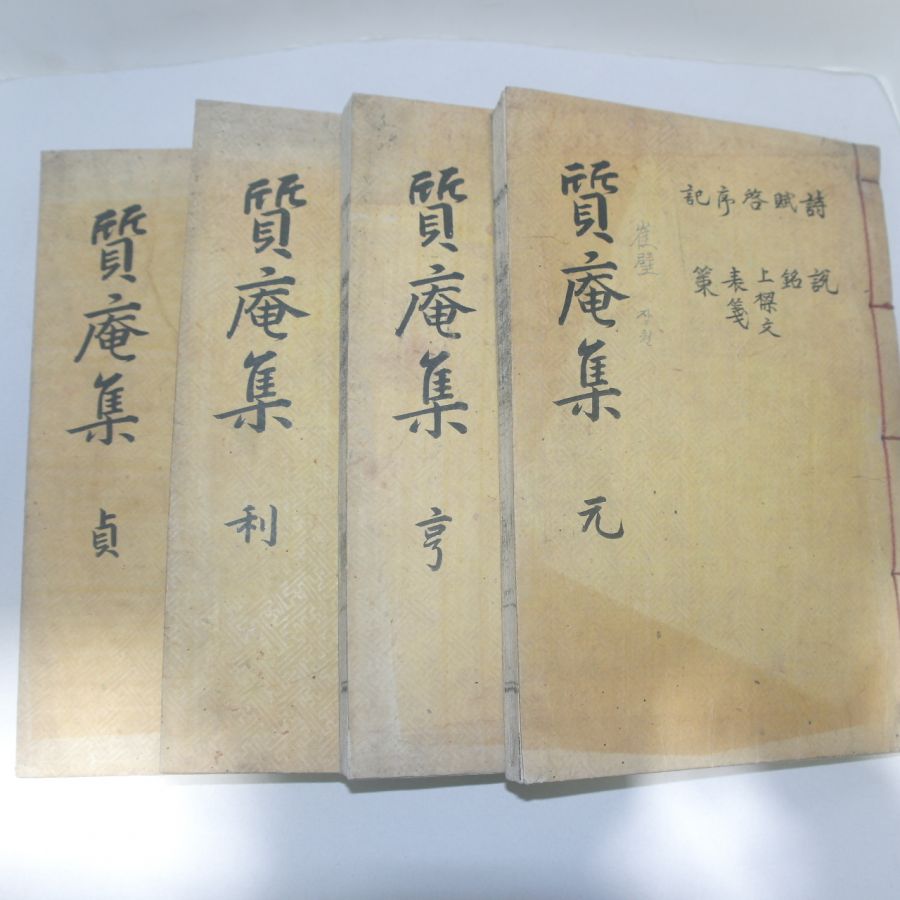 詩 說
賦 銘
啓 上樑文
序 表箋
記 策
崔璧 장원
質庵集 元
質庵集 亨
質庵集 利
質庵集 貞